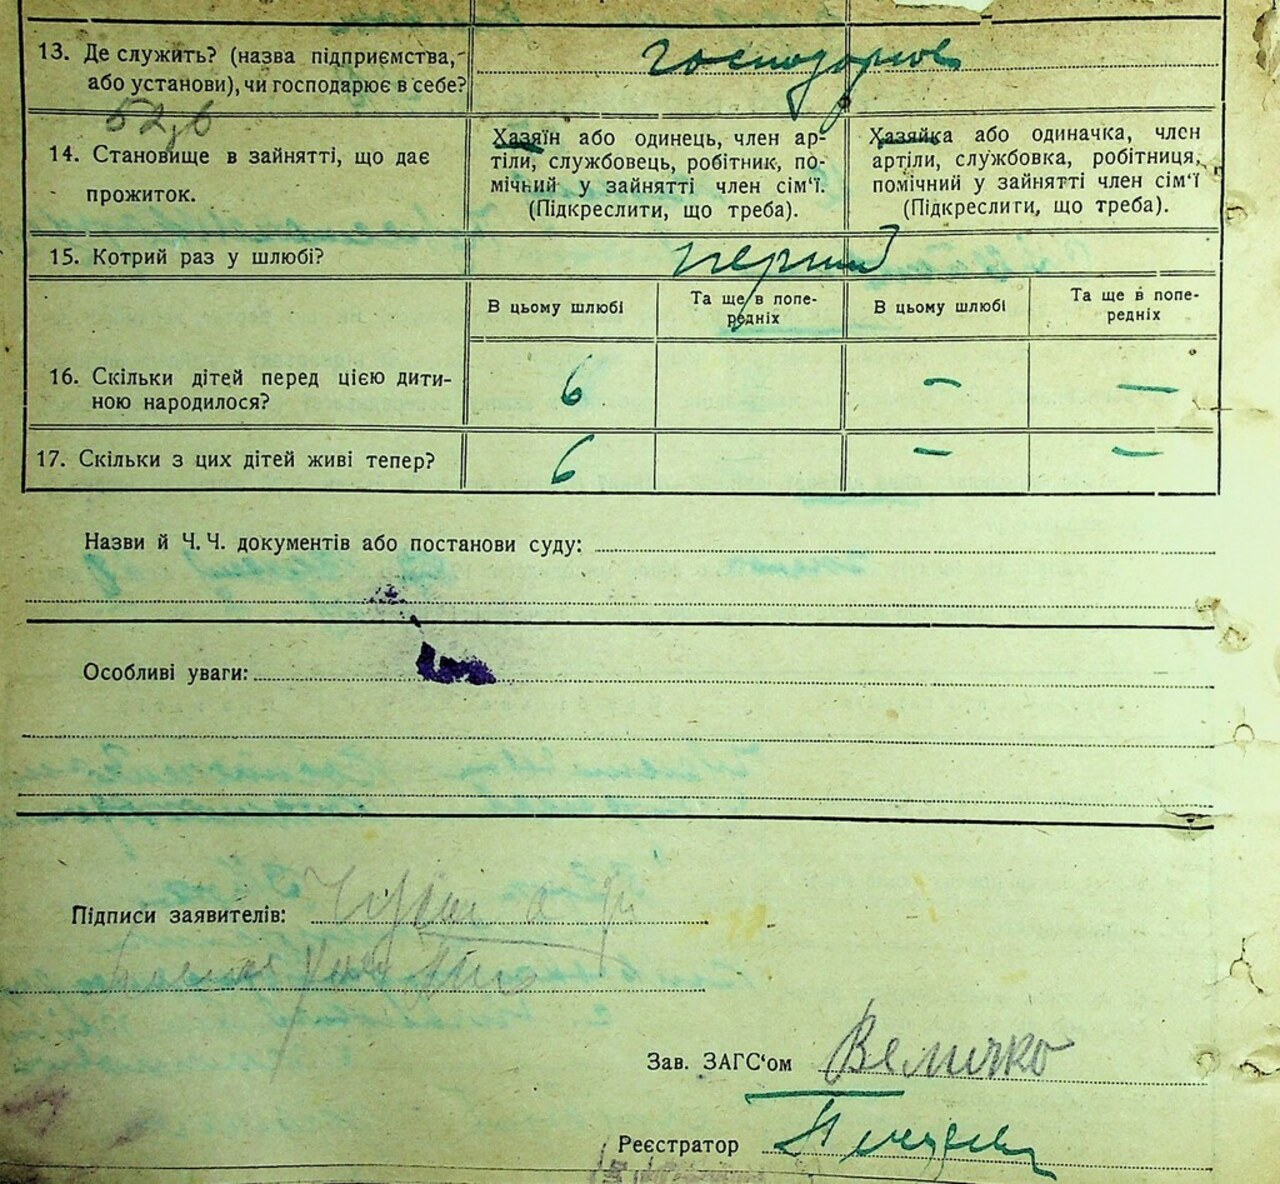 13. Де служить? (назва підприємства,
або установи), чи господарює в себе?
52,6
14. Становище в зайнятті, що дає
прожиток.
Хазяїн або одинець, член ар-
тіли, службовець, робітник, по-
мічний у зайнятті член сім'ї.
(Підкреслити, що треба).
Хазяйка або одиначка, член
артіли, службовка, робітниця,
помічний у зайнятті член сім'ї
(Підкреслити, що треба).
15. Котрий раз у шлюбі?
перший
В цьому шлюбі
Та ще в попе-
редніх
В цьому шлюбі
Та ще в попе-
редніх
16. Скільки дітей перед цією дити-
ною народилося?
6 – –
17. Скільки з цих дітей живі тепер?
6 – –
Назви й Ч. Ч. документів або постанови суду:
Особливі уваги:
Підписи заявителів:
Зав. ЗАГС'ом Величко
Реєстратор